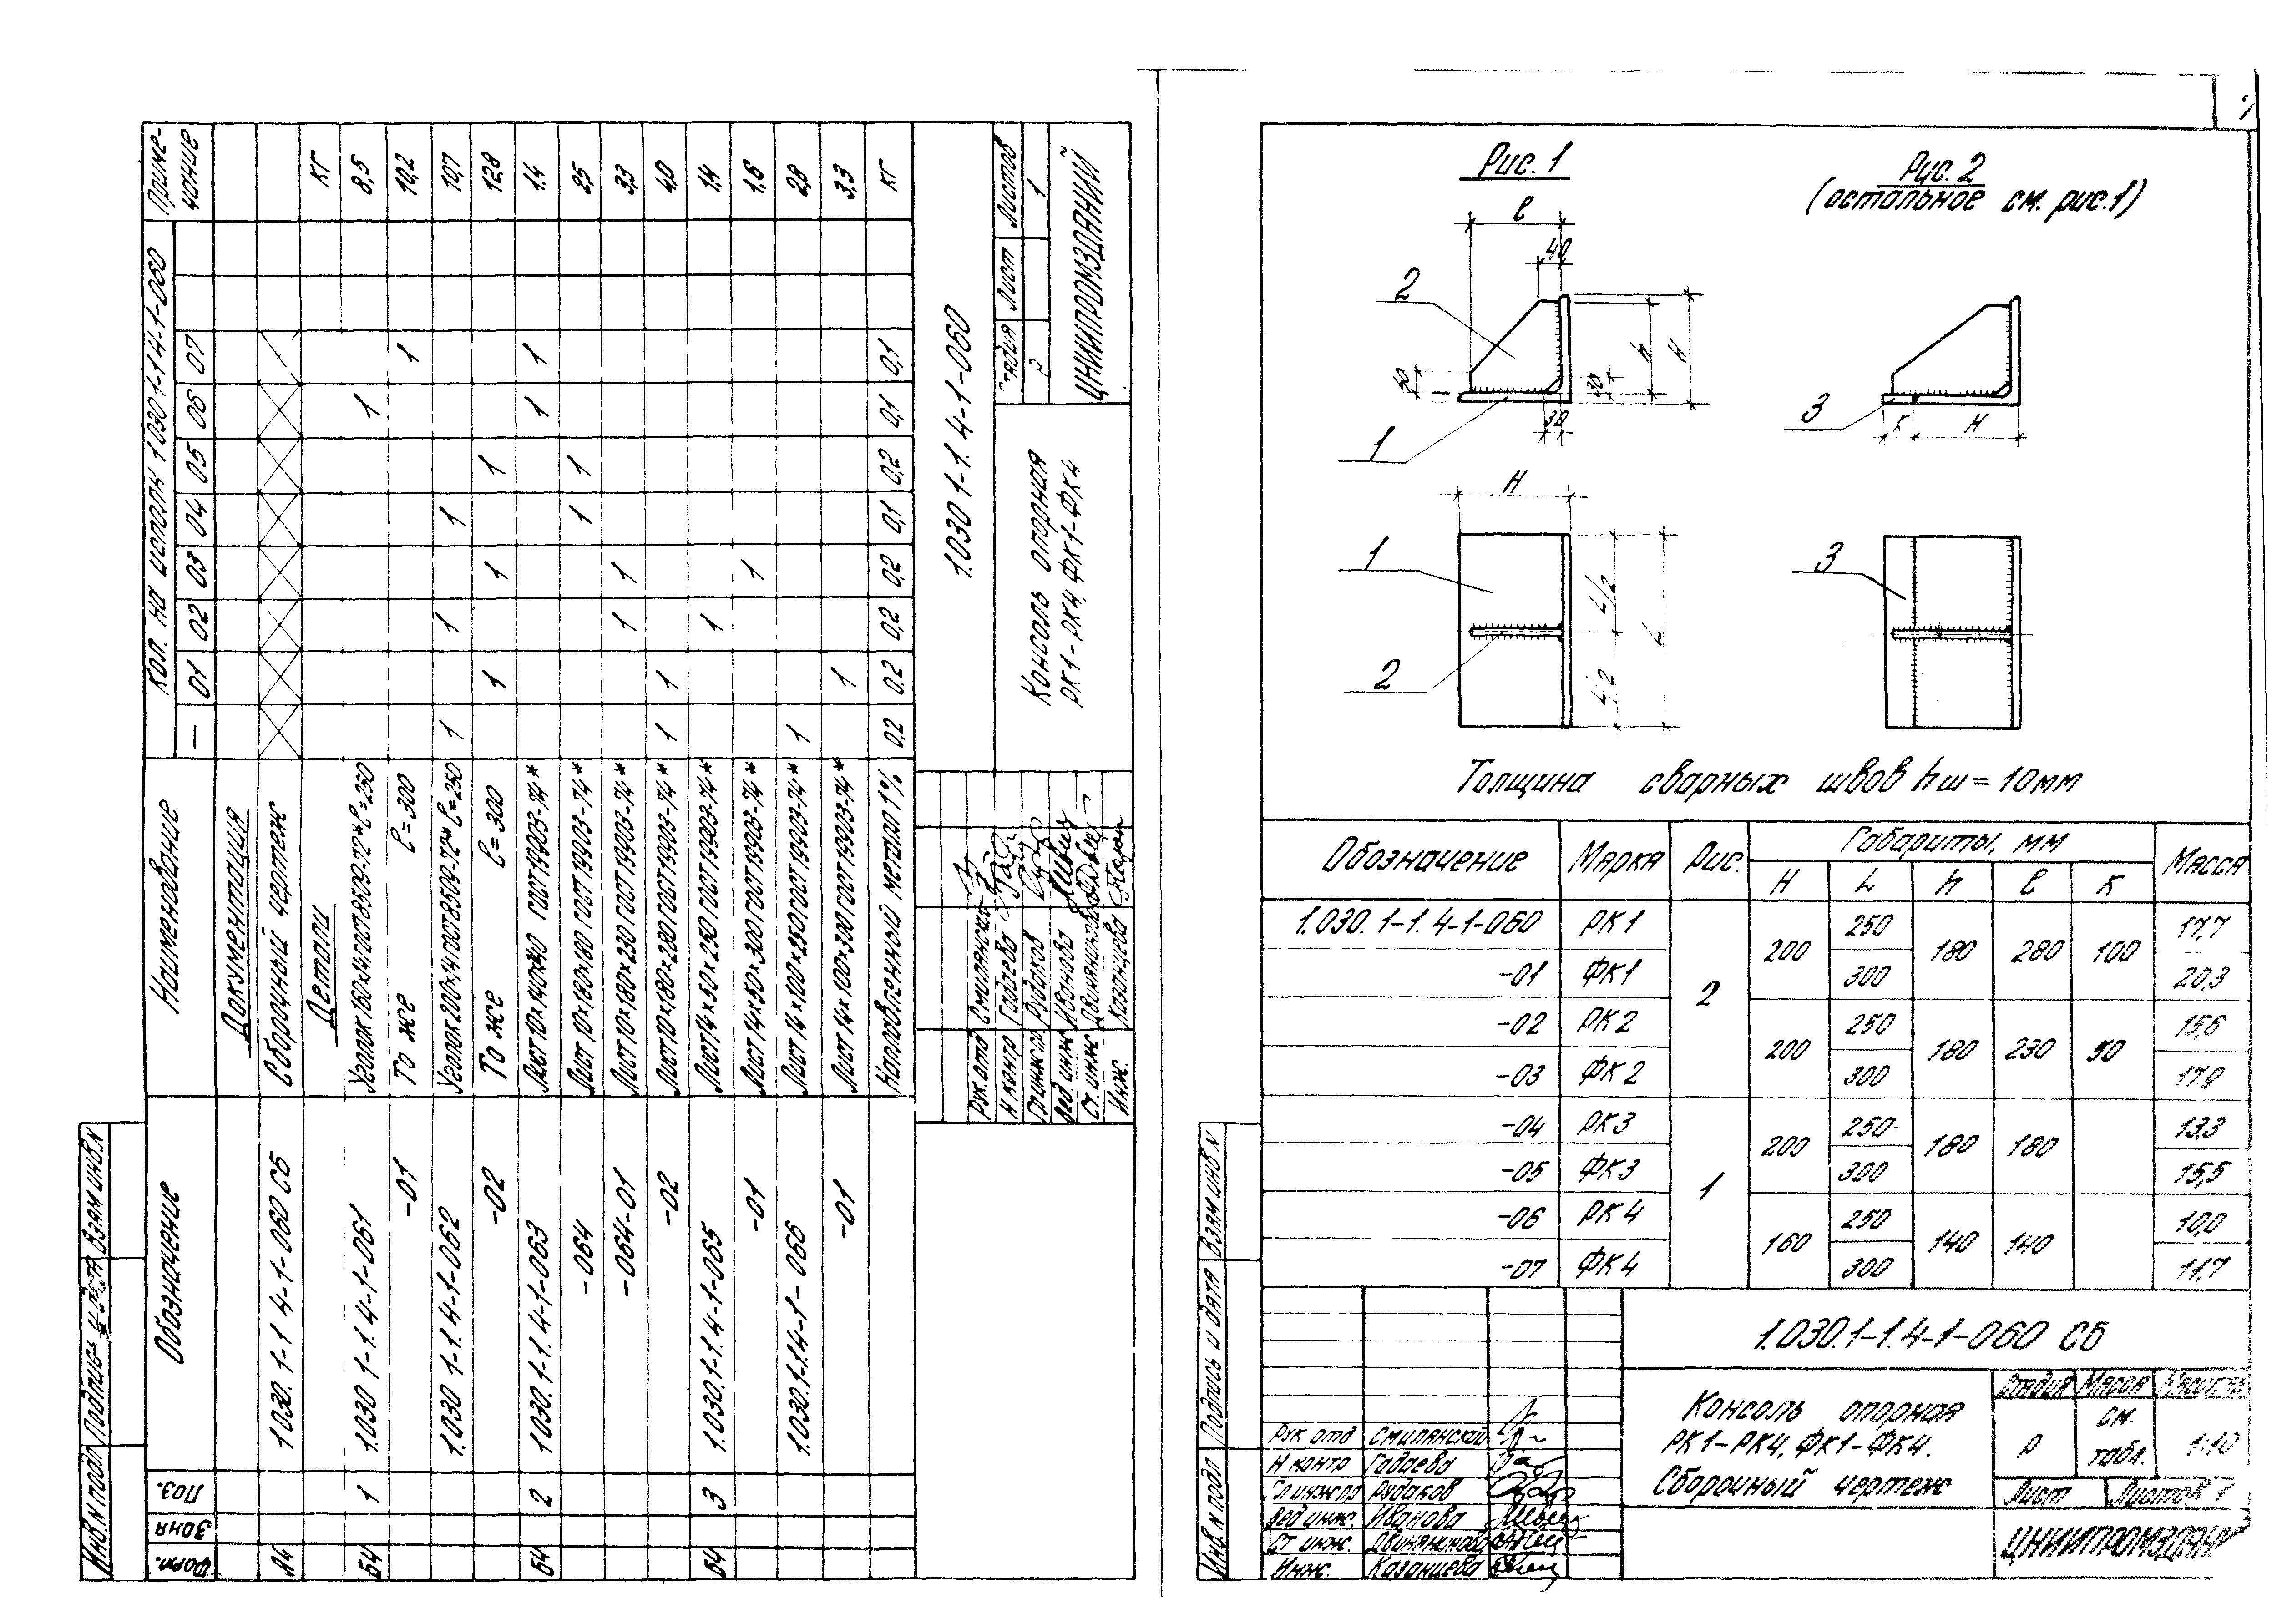 Формат
Зона
Поз.
Обозначение
Наименование
Кол. на исполн 1.030 1-1 4-1-060
— 01 02 03 04 05 06 07
Приме-
чание
Документация
А4 1.030. 1-1 4-1-060 СБ Сборочный чертеж
Детали кг
Б4 1 1.030 1-1. 4-1-061 Уголок 160×14 ГОСТ 8509-72* ℓ=250 1 8,5
-01 То же ℓ=300 1 10,2
1.030 1-1. 4-1-062 Уголок 200×14 ГОСТ 8509-72* ℓ=250 1 1 1 10,7
-02 То же ℓ=300 1 1 1 12,8
Б4 2 1.030. 1-1. 4-1-063 Лист 10×140×140 ГОСТ 19903-74* 1 1 1,4
-064 Лист 10×180×180 ГОСТ 19903-74* 1 1 2,5
-064-01 Лист 10×180×230 ГОСТ 19903-74* 1 1 3,3
-02 Лист 10×180×280 ГОСТ 19903-74* 1 1 4,0
Б4 3 1.030. 1-1. 4-1-065 Лист 14×50×250 ГОСТ 19903-74* 1 1,4
-01 Лист 14×50×300 ГОСТ 19903-74* 1 1,6
1.030. 1-1.4-1-066 Лист 14×100×250 ГОСТ 19903-74* 1 2,8
-01 Лист 14×100×300 ГОСТ 19903-74* 1 3,3
Наплавленный металл 1% 0,2 0,2 0,2 0,2 0,1 0,2 0,1 0,1 кг
1.030 1-1. 4-1-060
Рук. отд Смилянский
Н контр Гадаева
Гл инж пр Рудаков
Вед инж Иванова
Ст. инж Двинянинова
Инж. Казанцева
Консоль опорная
РК1-РК4, ФК1-ФК4
Стадия Лист Листов
Р 1
ЦНИИПРОМЗДАНИЙ
Инв. N подл Подпись и дата Взам инв. N
Рис. 1
Рис. 2
(остальное см. рис. 1)
ℓ
40
2
50
30
h
H
30
1
3
К
H
H
1
3
L/2
L
2
L/2
Толщина сварных швов hш = 10мм
Обозначение Марка Рис. Габариты, мм Масса
H L h ℓ К
1.030. 1-1. 4-1-060 РК1 2 200 250 180 280 100 17,7
-01 ФК1 300 20,3
-02 РК2 200 250 180 230 50 15,6
-03 ФК2 300 17,9
-04 РК3 1 200 250 180 180 13,3
-05 ФК3 300 15,5
-06 РК4 160 250 140 140 10,0
-07 ФК4 300 11,7
1.030.1-1.4-1-060 СБ
Рук отд Смилянский
Н контр Гадаева
Гл инж пр Рудаков
Вед инж. Иванова
Ст инж. Двинянинова
Инж. Казанцева
Консоль опорная
РК1-РК4, ФК1-ФК4.
Сборочный чертеж
Стадия Масса Масштаб
Р см. табл. 1:10
Лист Листов 1
ЦНИИПРОМЗДАНИЙ
Инв. N подл Подпись и дата Взам инв N